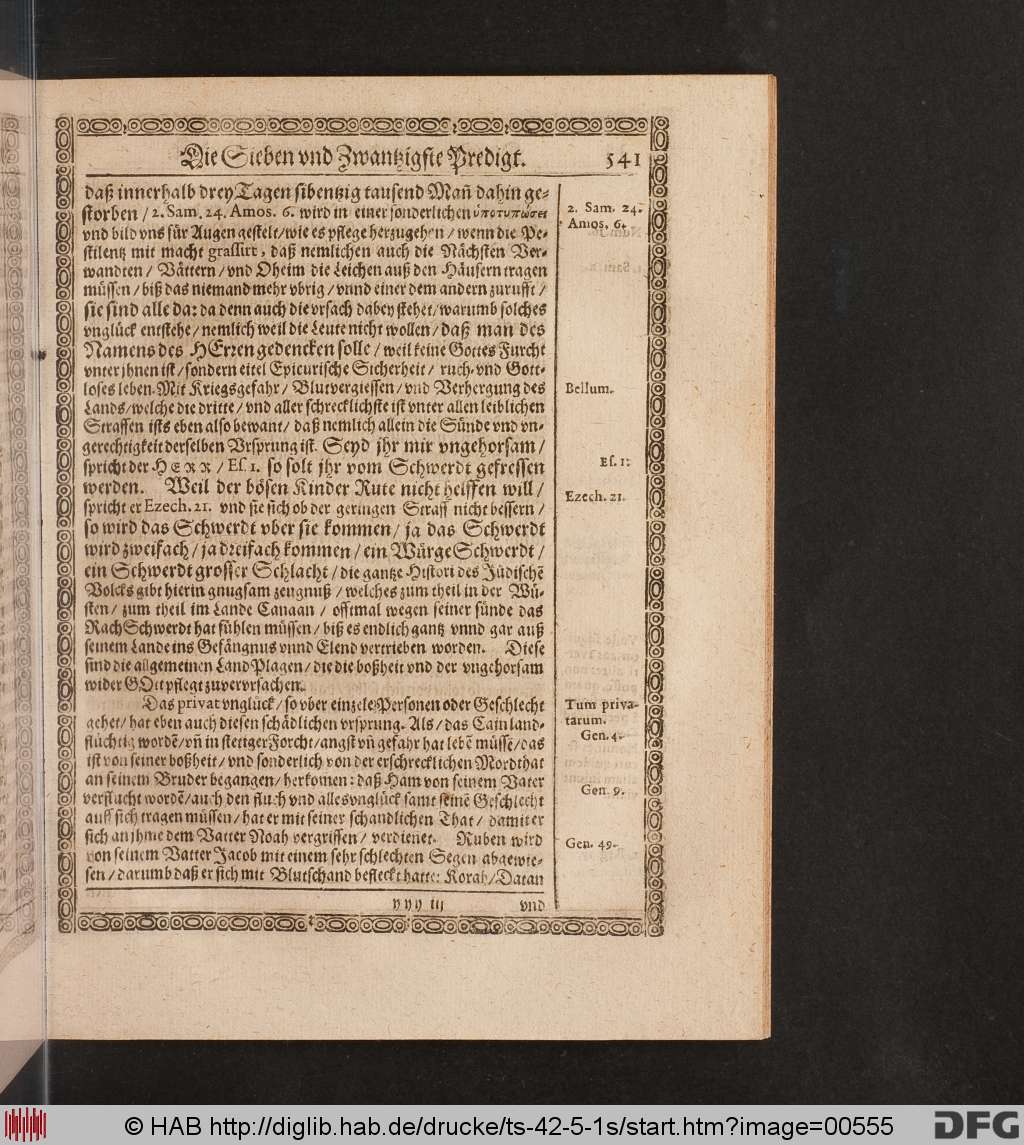 Die Sieben vnd Zwantzigste Predigt. 541
daß innerhalb drey Tagen sibentzig tausend Mañ dahin ge-
storben / 2. Sam. 24. Amos. 6. wird in einer sonderlichen ὑποτυπώσει
vnd bild vns für Augen gestelt / wie es pflege herzugehen / wenn die Pe-
stilentz mit macht grassirt, daß nemlichen auch die Nächsten Ver-
wandten / Vättern / vnd Oheim die Leichen auß den Häusern tragen
müssen / biß das niemand mehr vbrig / vnnd einer dem andern zurufft /
sie sind alle da: da denn auch die vrsach dabey stehet / warumb solches
vnglück entstehe / nemlich weil die Leute nicht wollen / daß man des
Namens des HErren gedencken solle / weil keine Gottes Furcht
vnter jhnen ist / sondern eitel Epicurische Sicherheit / ruch- vnd Gott-
loses leben. Mit Kriegsgefahr / Blutvergiessen / vnd Verhergung des
Lands / welche die dritte / vnd aller schrecklichste ist vnter allen leiblichen
Straffen ists eben also bewant / daß nemlich allein die Sünde vnd vn-
gerechtigkeit derselben Vrsprung ist. Seyd jhr mir vngehorsam /
spricht der HERR / Es. 1. so solt jhr vom Schwerdt gefressen
werden. Weil der bösen Kinder Rute nicht helffen will /
spricht er Ezech. 21. vnd sie sich ob der geringen Straff nicht bessern /
so wird das Schwerdt vber sie kommen / ja das Schwerdt
wird zweifach / ja dreifach kommen / ein WürgeSchwerdt /
ein Schwerdt grosser Schlacht / die gantze Histori des Jüdischẽ
Volcks gibt hierin gnugsam zeugnuß / welches zum theil in der Wü-
sten / zum theil im Lande Canaan / offtmal wegen seiner sünde das
RachSchwerdt hat fühlen müssen / biß es endlich gantz vnnd gar auß
seinem Lande ins Gefängnus vnnd Elend vertrieben worden. Diese
sind die allgemeinen LandPlagen / die die boßheit vnd der vngehorsam
wider GOtt pflegt zuvervrsachen.
Das privat vnglück / so vber einzele Personen oder Geschlecht
gehet / hat eben auch diesen schädlichen vrsprung. Als / das Cain land-
flüchtig wordẽ / vñ in stetiger Forcht / angst vñ gefahr hat lebẽ müssẽ / das
ist von seiner boßheit / vnd sonderlich von der erschrecklichen Mordthat
an seinem Bruder begangen / herkomen: daß Ham von seinem Vater
verflucht wordẽ / auch den fluch vnd alles vnglück samt seinẽ Geschlecht
auff sich tragen müssen / hat er mit seiner schandlichen That / damit er
sich an jhme dem Vatter Noah vergriffen / verdienet. Ruben wird
von seinem Vatter Jacob mit einem sehr schlechten Segen abgewie-
sen / darumb daß er sich mit Blutschand befleckt hatte: Korah / Datan
yyy iij vnd
2. Sam. 24.
Amos. 6.
Bellum.
Es. 1:
Ezech. 21.
Tum priva-
tarum.
Gen. 4.
Gen. 9.
Gen. 49.
© HAB http://diglib.hab.de/drucke/ts-42-5-1s/start.htm?image=00555
DFG